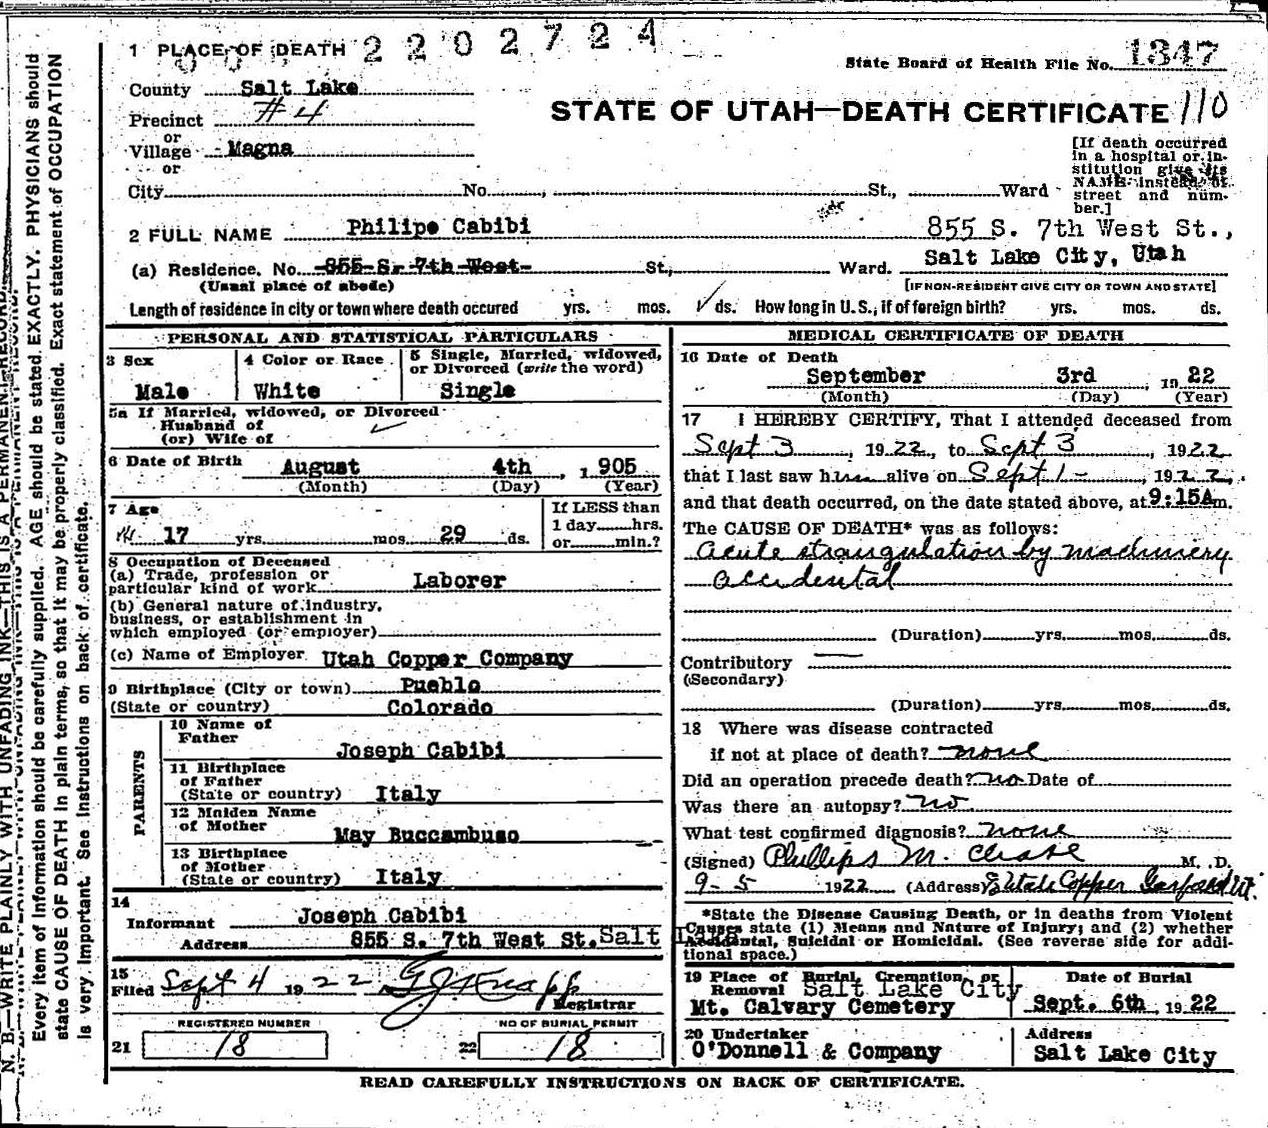 1 PLACE OF DEATH 2202724
State Board of Health File No. 1347
County Salt Lake
STATE OF UTAH—DEATH CERTIFICATE 110
Precinct #4
or
Village Magna
or
City No. , St., Ward
[If death occurred
in a hospital or in-
stitution give its
NAME instead of
street and num-
ber.]
2 FULL NAME Philipe Cabibi 855 S. 7th West St.,
(a) Residence. No. 855 S. 7th West St., Ward. Salt Lake City, Utah
(Usual place of abode) [IF NON-RESIDENT GIVE CITY OR TOWN AND STATE]
Length of residence in city or town where death occured yrs. mos. ds. How long in U. S., if of foreign birth? yrs. mos. ds.
PERSONAL AND STATISTICAL PARTICULARS
3 Sex
Male
4 Color or Race
White
5 Single, Married, widowed,
or Divorced (write the word)
Single
5a If Married, widowed, or Divorced
Husband of
(or) Wife of
6 Date of Birth August 4th , 1905
(Month) (Day) (Year)
7 Age
17 yrs. mos. 29 ds.
If LESS than
1 day hrs.
or min.?
8 Occupation of Deceased
(a) Trade, profession or
particular kind of work Laborer
(b) General nature of industry,
business, or establishment in
which employed (or employer)
(c) Name of Employer Utah Copper Company
9 Birthplace (City or town) Pueblo
(State or country) Colorado
PARENTS
10 Name of
Father
Joseph Cabibi
11 Birthplace
of Father
(State or country) Italy
12 Maiden Name
of Mother
May Buccambuso
13 Birthplace
of Mother
(State or country) Italy
14
Informant Joseph Cabibi
Address 855 S. 7th West St. Salt Lake
15
Filed Sept 4 1922 G J Knapp
Registrar
REGISTERED NUMBER
21 18
NO OF BURIAL PERMIT
22 18
MEDICAL CERTIFICATE OF DEATH
16 Date of Death
September 3rd , 1922
(Month) (Day) (Year)
17 I HEREBY CERTIFY, That I attended deceased from
Sept 3 , 1922, to Sept 3 , 1922
that I last saw him alive on Sept 1 - , 1922,
and that death occurred, on the date stated above, at 9:15A m.
The CAUSE OF DEATH* was as follows:
Acute strangulation by machinery
accidental
(Duration) yrs. mos. ds.
Contributory
(Secondary)
(Duration) yrs. mos. ds.
18 Where was disease contracted
if not at place of death? none
Did an operation precede death? no Date of
Was there an autopsy? no
What test confirmed diagnosis? none
(Signed) Phillips M. Chase M. D.
9-5 1922 (Address) Utah Copper Garfield Ut.
*State the Disease Causing Death, or in deaths from Violent
Causes state (1) Means and Nature of Injury; and (2) whether
Accidental, Suicidal or Homicidal. (See reverse side for addi-
tional space.)
19 Place of Burial, Cremation, or
Removal Salt Lake City
Mt. Calvary Cemetery
Date of Burial
Sept. 6th , 1922
20 Undertaker
O'Donnell & Company
Address
Salt Lake City
READ CAREFULLY INSTRUCTIONS ON BACK OF CERTIFICATE.
N. B.—WRITE PLAINLY WITH UNFADING INK—THIS IS A PERMANENT RECORD.
Every item of information should be carefully supplied. AGE should be stated EXACTLY. PHYSICIANS should
state CAUSE OF DEATH in plain terms, so that it may be properly classified. Exact statement of OCCUPATION
is very important. See instructions on back of certificate.